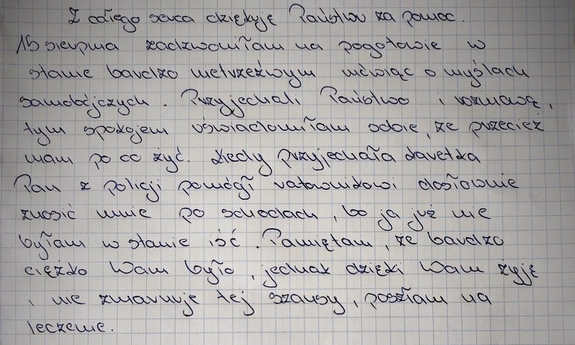 Z całego serca dziękuję Państwu za pomoc.
16 sierpnia zadzwoniłam na pogotowie w
stanie bardzo nietrzeźwym mówiąc o myślach
samobójczych. Przyjechali Państwo i rozmową,
tym spokojem uświadomiłam sobie, że przecież
mam po co żyć. Kiedy przyjechała karetka
Pan z policji pomógł ratownikowi dosłownie
znosić mnie po schodach, bo ja już nie
byłam w stanie iść. Pamiętam, że bardzo
ciężko Wam było, jednak dzięki Wam żyję
i nie zmarnuję tej szansy, poszłam na
leczenie.